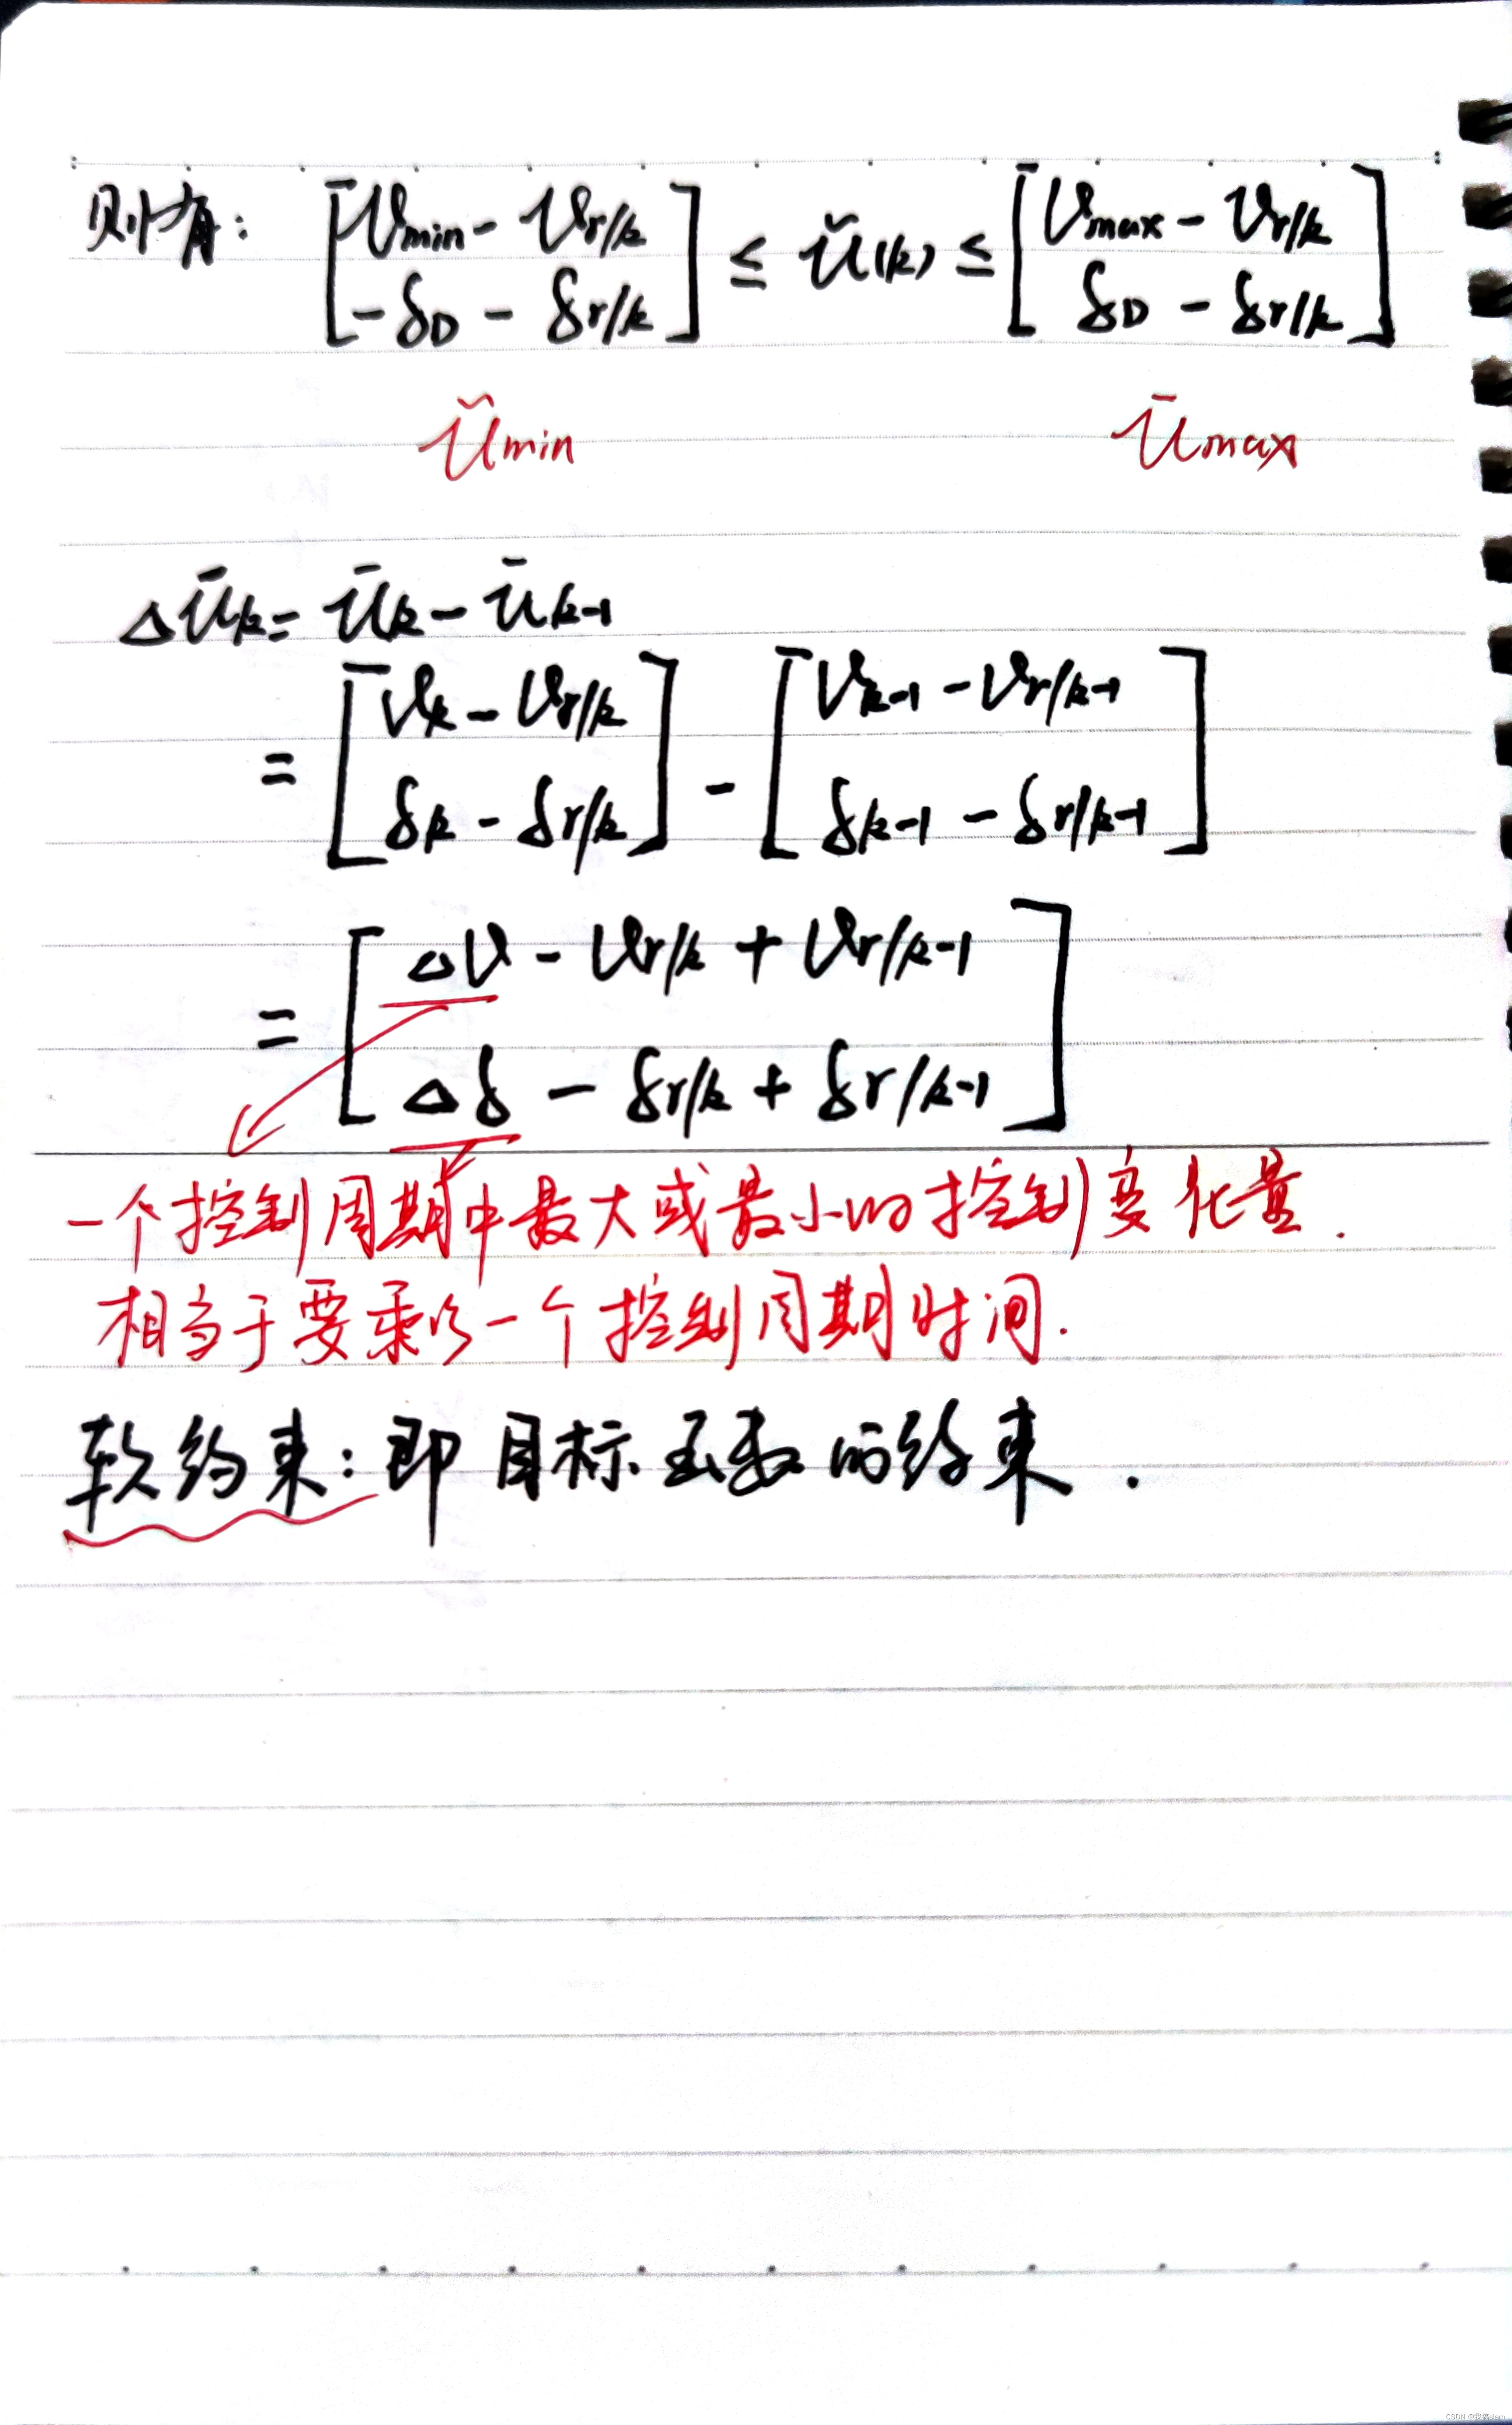 则有: [Vmin - Vr/k; -δD - δr/k] ≤ ũ(k) ≤ [Vmax - Vr/k; δD - δr/k]
ũmin ūmax
Δūk = ūk - ūk-1
= [Vk - Vr/k; δk - δr/k] - [Vk-1 - Vr/k-1; δk-1 - δr/k-1]
= [ΔV - Vr/k + Vr/k-1; Δδ - δr/k + δr/k-1]
一个控制周期中最大或最小的控制变化量.
相当于要乘以一个控制周期时间.
软约束: 即目标函数的约束.